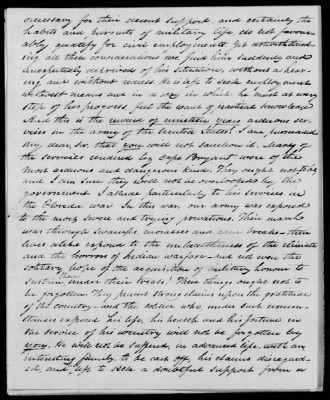 necessary for their decent support, and certainly the
habits and pursuits of military life do not favour-
ably qualify for civil employments. Yet notwithstand-
ing all these considerations we find him suddenly and
unexpectedly deprived of his situation, without a hear-
ing and without redress. He is left to seek employment
without means and in a way in which he must at every
step of his progress, feel the want of practical knowledge.
And this is the reward of nineteen years arduous ser-
vices in the army of the United States! I am persuaded
my dear, Sir, that you will not sanction it. Many of
the services rendered by Capt Bryant were of the
most arduous and dangerous kind. They ought not to be
and I am sure they will not be overlooked by the
government. I allude particularly to his services in
the Florida war. In this war, our army was exposed
to the most severe and trying privations. Their march
was through swamps, morasses and cane breaks—their
lives alike exposed to the unhealthiness of the climate
and the horrors of Indian warfare—and not even the
solitary hope of the acquisition of military honour to
sustain them under their trials. These things ought not to
be forgotten. They present strong claims upon the gratitude
of the country—and the soldier who, under such circum-
stances exposed his life, his health and his fortune in
the service of his country will not be forgotten by
you. He will not be suffered, in advanced life, with an
interesting family, to be cast off, his claims disregard-
ed, and left to seek a doubtful support from a